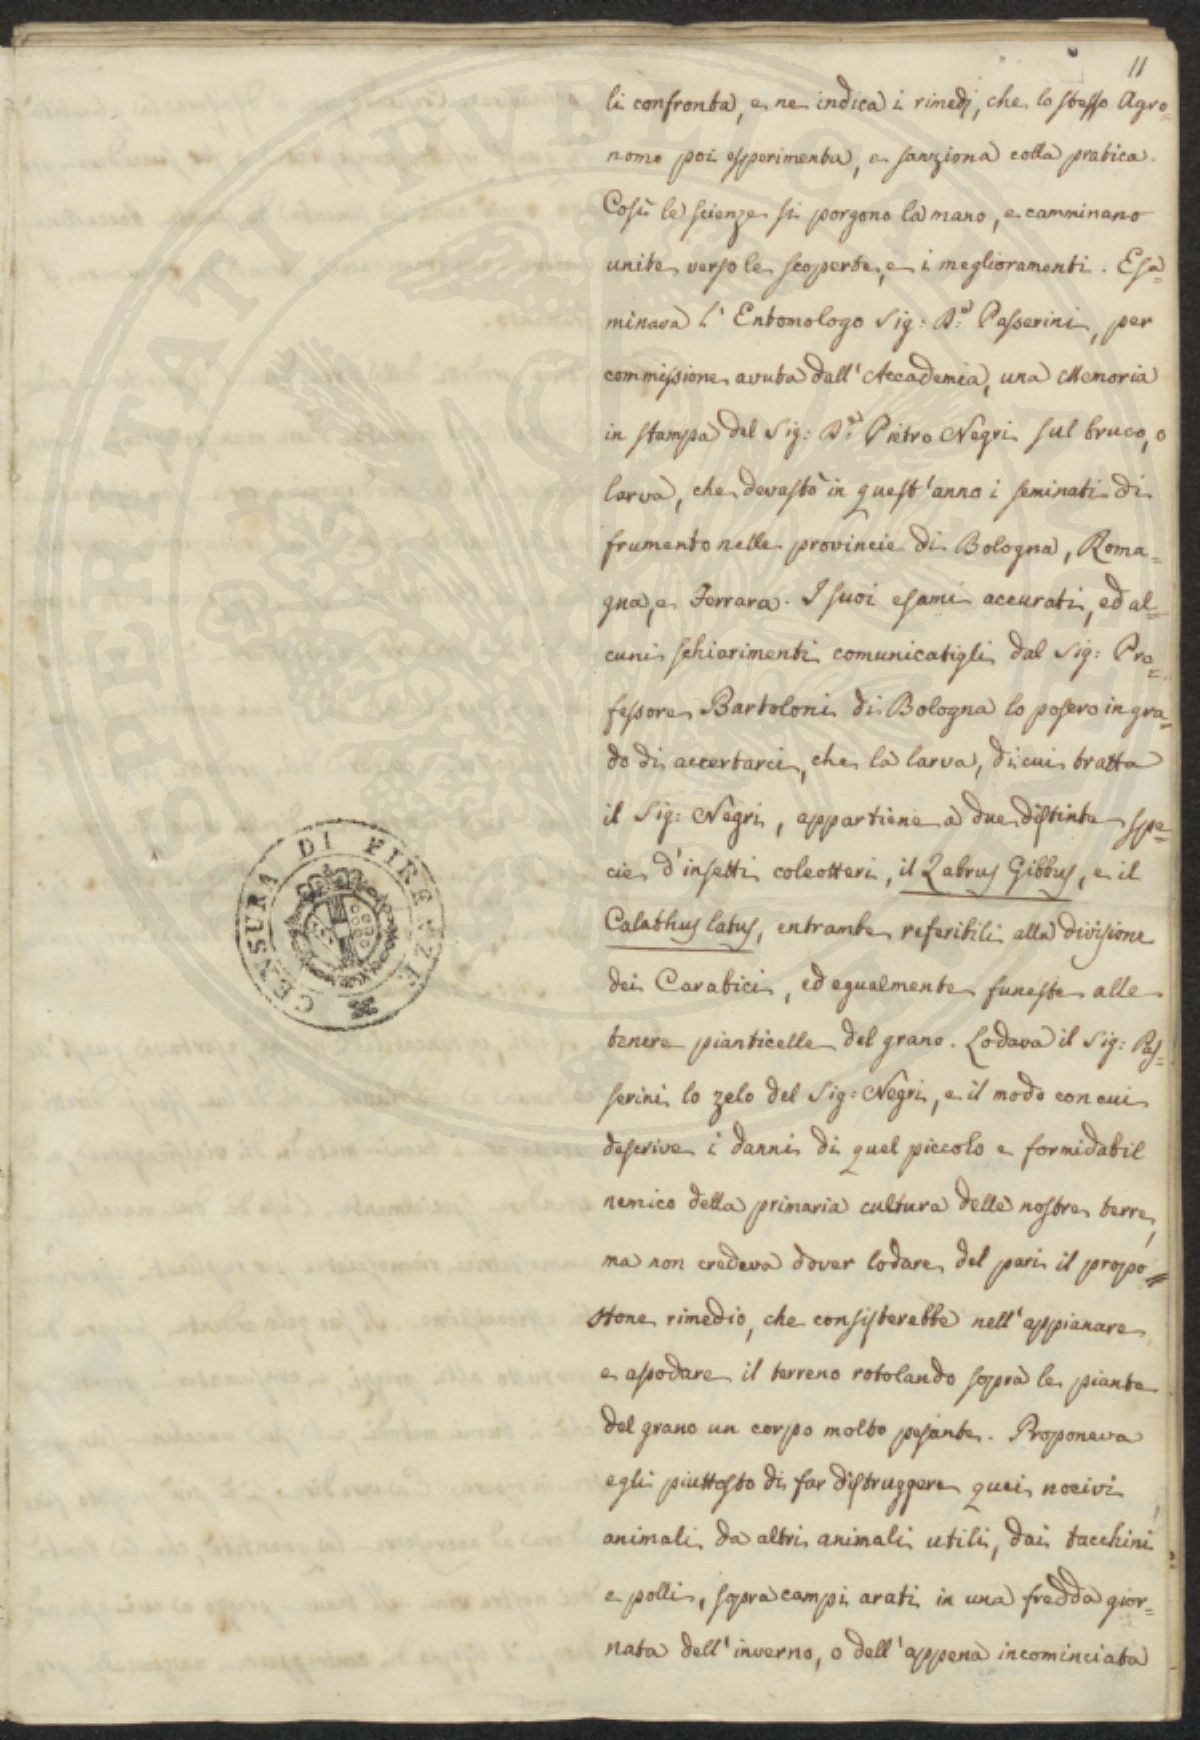 11
li confronta, e ne indica i rimedj, che lo stesso Agro=
nomo poi esperimenta, e sanziona colla pratica.
Così le scienze si porgono la mano, e camminano
unite verso le scoperte, e i meglioramenti. Esa=
minava l'Entomologo Sig: D:r Passerini, per
commissione avuta dall'Accademia, una Memoria
in stampa del Sig: D:r Pietro Negri sul bruco, o
larva, che devastò in quest'anno i seminati di
frumento nelle provincie di Bologna, Roma=
gna, e Ferrara. I suoi esami accurati, ed al=
cuni schiarimenti comunicatigli dal Sig: Pro=
fessore Bartoloni di Bologna lo posero in gra=
do di accertarci, che la larva, di cui tratta
il Sig: Negri, appartiene a due distinte spe=
cie d'insetti coleotteri, il Zabrus Gibbus, e il
Calathus latus, entrambe referibili alla divisione
dei Carabici, ed egualmente funeste alle
tenere pianticelle del grano. Lodava il Sig: Pas=
serini lo zelo del Sig: Negri, e il modo con cui
descrive i danni di quel piccolo e formidabil
nemico della primaria cultura delle nostre terre,
ma non credeva dover lodare del pari il propo=
stone rimedio, che consisterebbe nell'appianare
e assodare il terreno rotolando sopra le piante
del grano un corpo molto pesante. Proponeva
egli piuttosto di far distruggere quei nocivi
animali da altri animali utili, dai tacchini
e polli, sopra campi arati in una fredda gior=
nata dell'inverno, o dell'appena incominciata
CENSURA DI FIRENZE
SPERITATI PVBLICAE